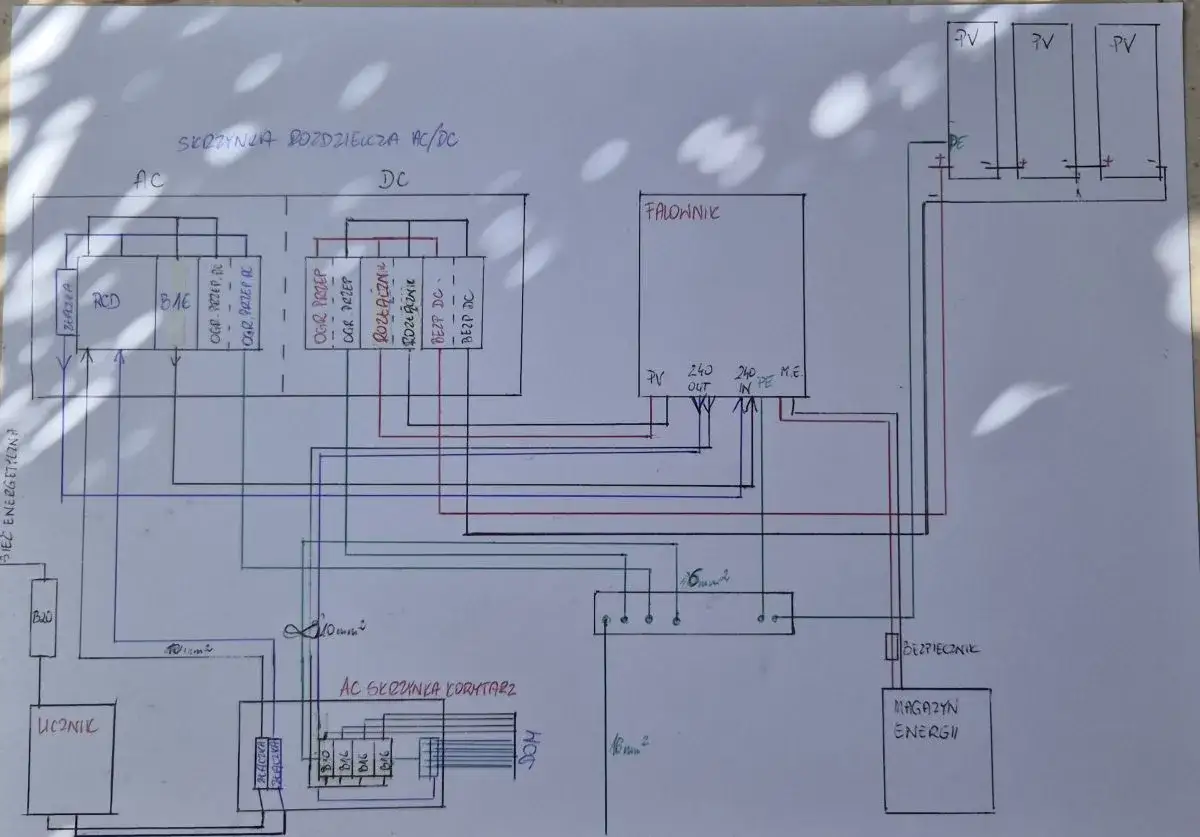 PV
PV
PV
SKRZYNKA ROZDZIELCZA AC/DC
PE
+
-
+
-
+
-
AC
DC
-
FALOWNIK
ZŁĄCZKA
RCD
B16
OGR. PRZEP. AC
OGR. PRZEP AC
OGR. PRZEP
OGR. PRZEP
ROZŁĄCZNIK
ROZŁĄCZNIK
BEZP DC
BEZP DC
PV
240
OUT
240
IN
PE
M.E.
ENERGETYCZNA
B20
16mm²
10mm²
10mm²
BEZPIECZNIK
AC SKRZYNKA KORYTARZ
LICZNIK
MAGAZYN
ENERGII
ZŁĄCZKA
ZŁĄCZKA
B10
B16
B16
B16
DOM
16mm²